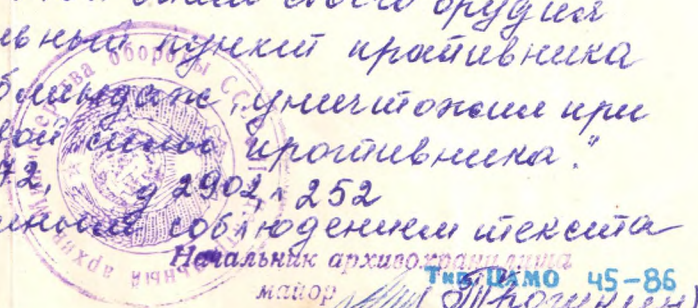 огнем своего орудия
ный пункт противника
блиндаж, уничтожил при
вой силы противника."
72, д 2902, л 252
соблюдением текста
Начальник архивохранилища
Тип. ЦАМО 45-86
майор
обороны СССР